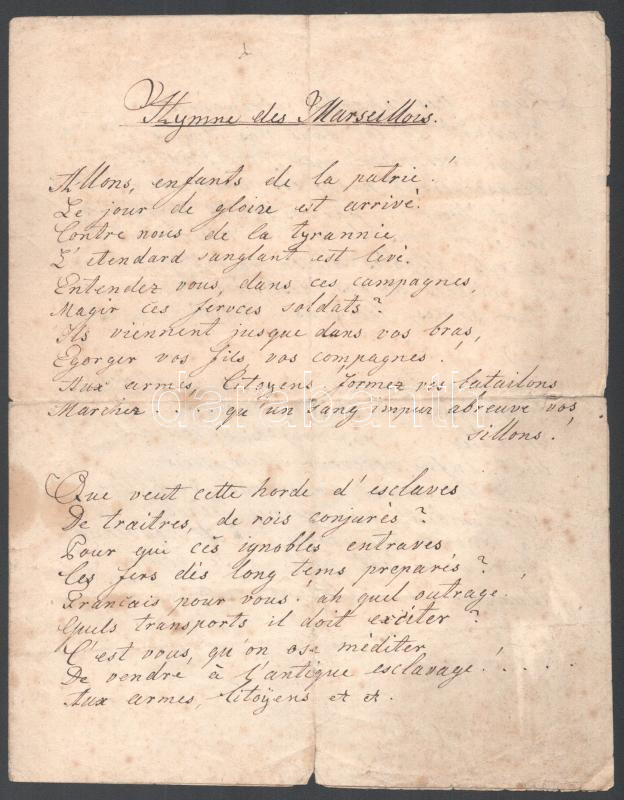 Hymne des Marseillois.
Allons, enfants de la patrie!
Le jour de gloire est arrivé.
Contre nous de la tyrannie
L'étendard sanglant est livé.
Entendez vous, dans ces campagnes,
Magir ces feroces soldats?
Ils viennent jusque dans vos bras,
Egorger vos fils, vos compagnes!
Aux armes, Citoyens. formez vos batailons
Marchez . . . . qu'un sang impur abreuve vos
sillons!
Que veut cette horde d'esclaves
De traitres, de rois conjurés?
Pour qui cés ignobles entraves
Ces fers dés long tems preparés?
Francais pour vous! ah quel outrage!
Quels transports il doit exciter?
C'est vous, qu'on ose méditer
De vendre à l'antique esclavage! . . . . .
Aux armes, Citoÿens et et.
darabanth